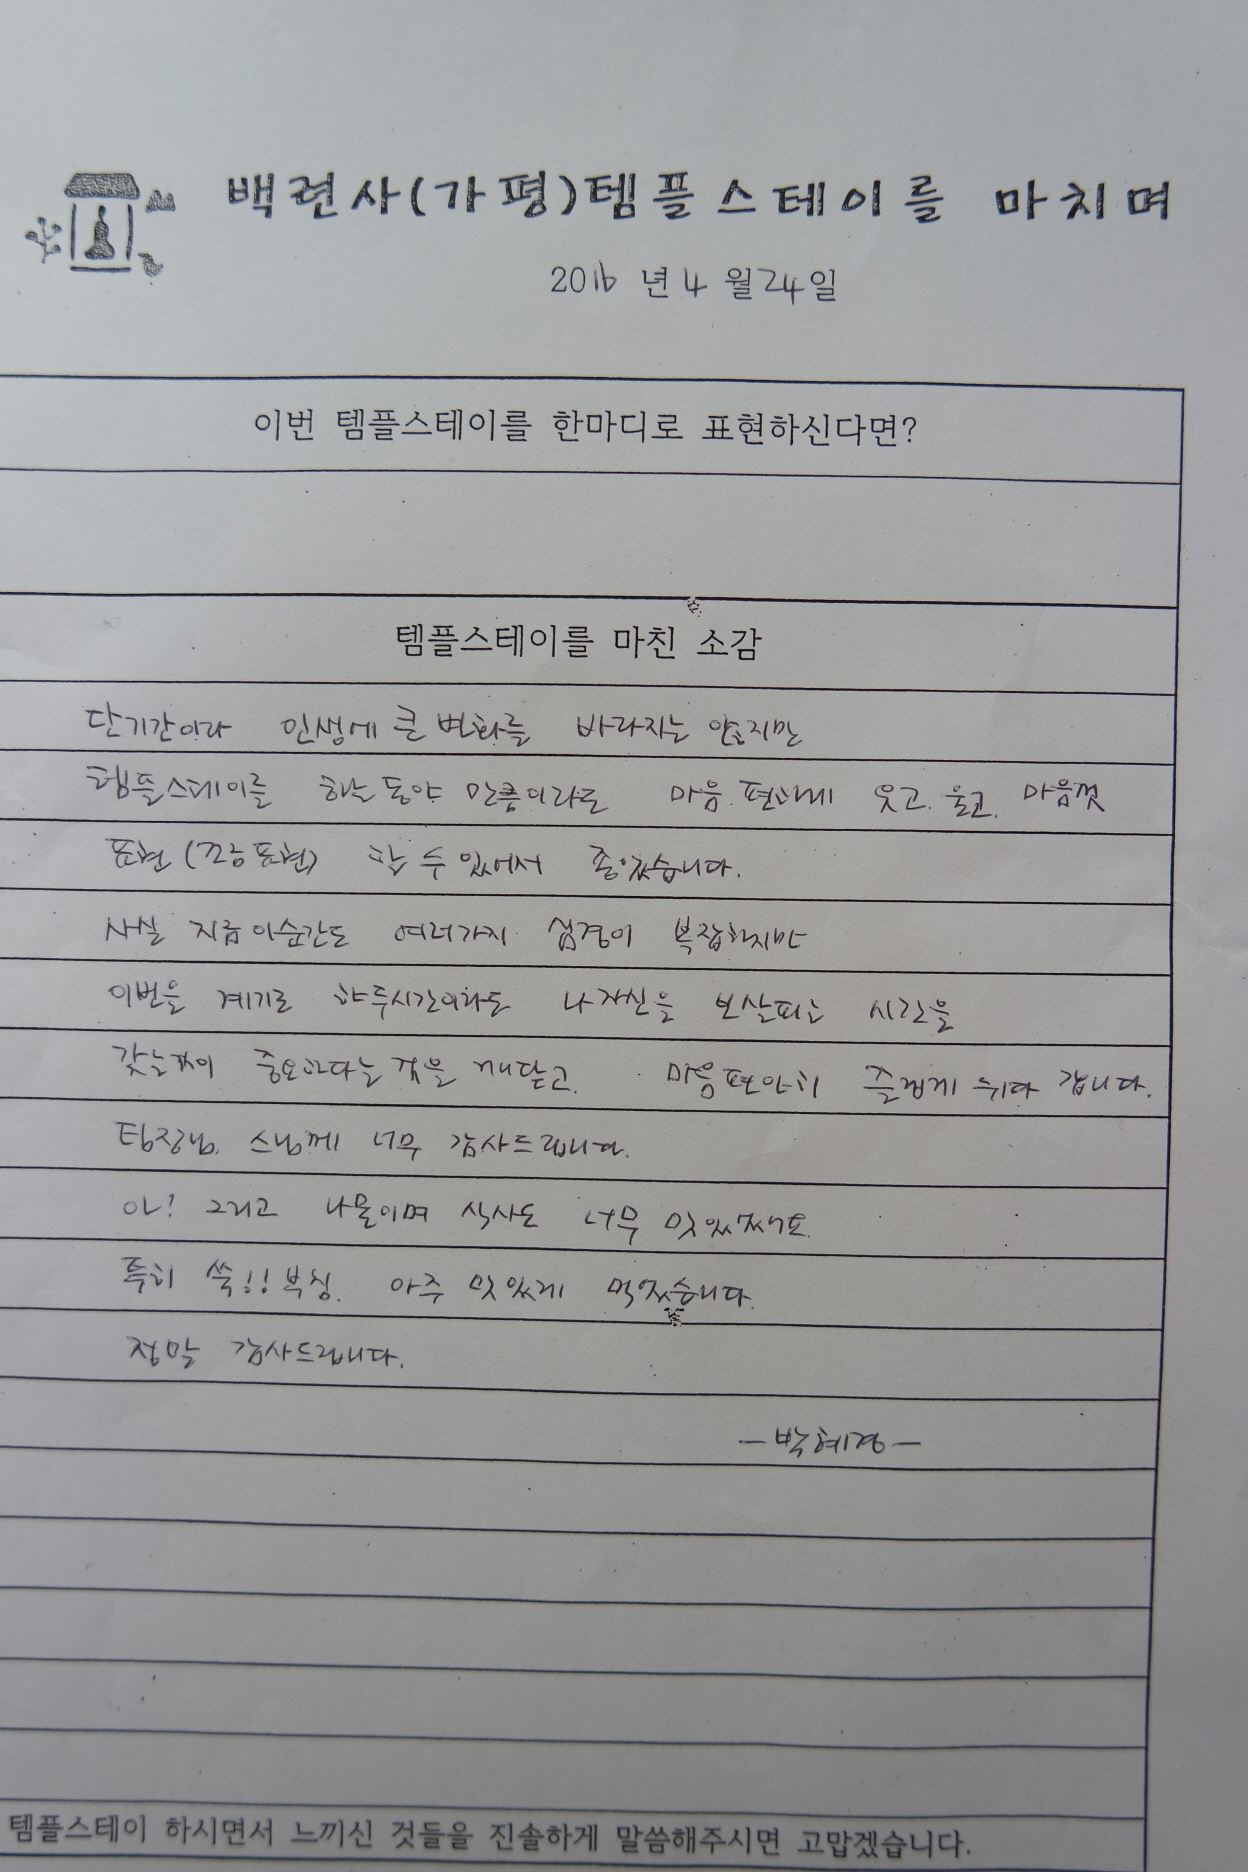 백련사(가평)템플스테이를 마치며
2016 년 4 월 24 일
이번 템플스테이를 한마디로 표현하신다면?
템플스테이를 마친 소감
단기간이라 인생에 큰 변화를 바라지는 않지만
템플스테이를 하는동안 만큼이라도 마음 편하게 웃고. 울고. 마음껏
표현(감정표현) 할 수 있어서 좋았습니다.
사실 지금 이순간도 여러가지 심경이 복잡하지만
이번을 계기로 한두시간이라도 나 자신을 보살피는 시간을
갖는것이 중요하다는 것을 깨닫고. 마음편안히 즐겁게 쉬다 갑니다.
팀장님. 스님께 너무 감사드립니다.
아! 그리고 나물이며 식사도 너무 맛있었어요.
특히 쑥!! 부침. 아주 맛있게 먹었습니다.
정말 감사드립니다.
－박혜경－
템플스테이 하시면서 느끼신 것들을 진솔하게 말씀해주시면 고맙겠습니다.